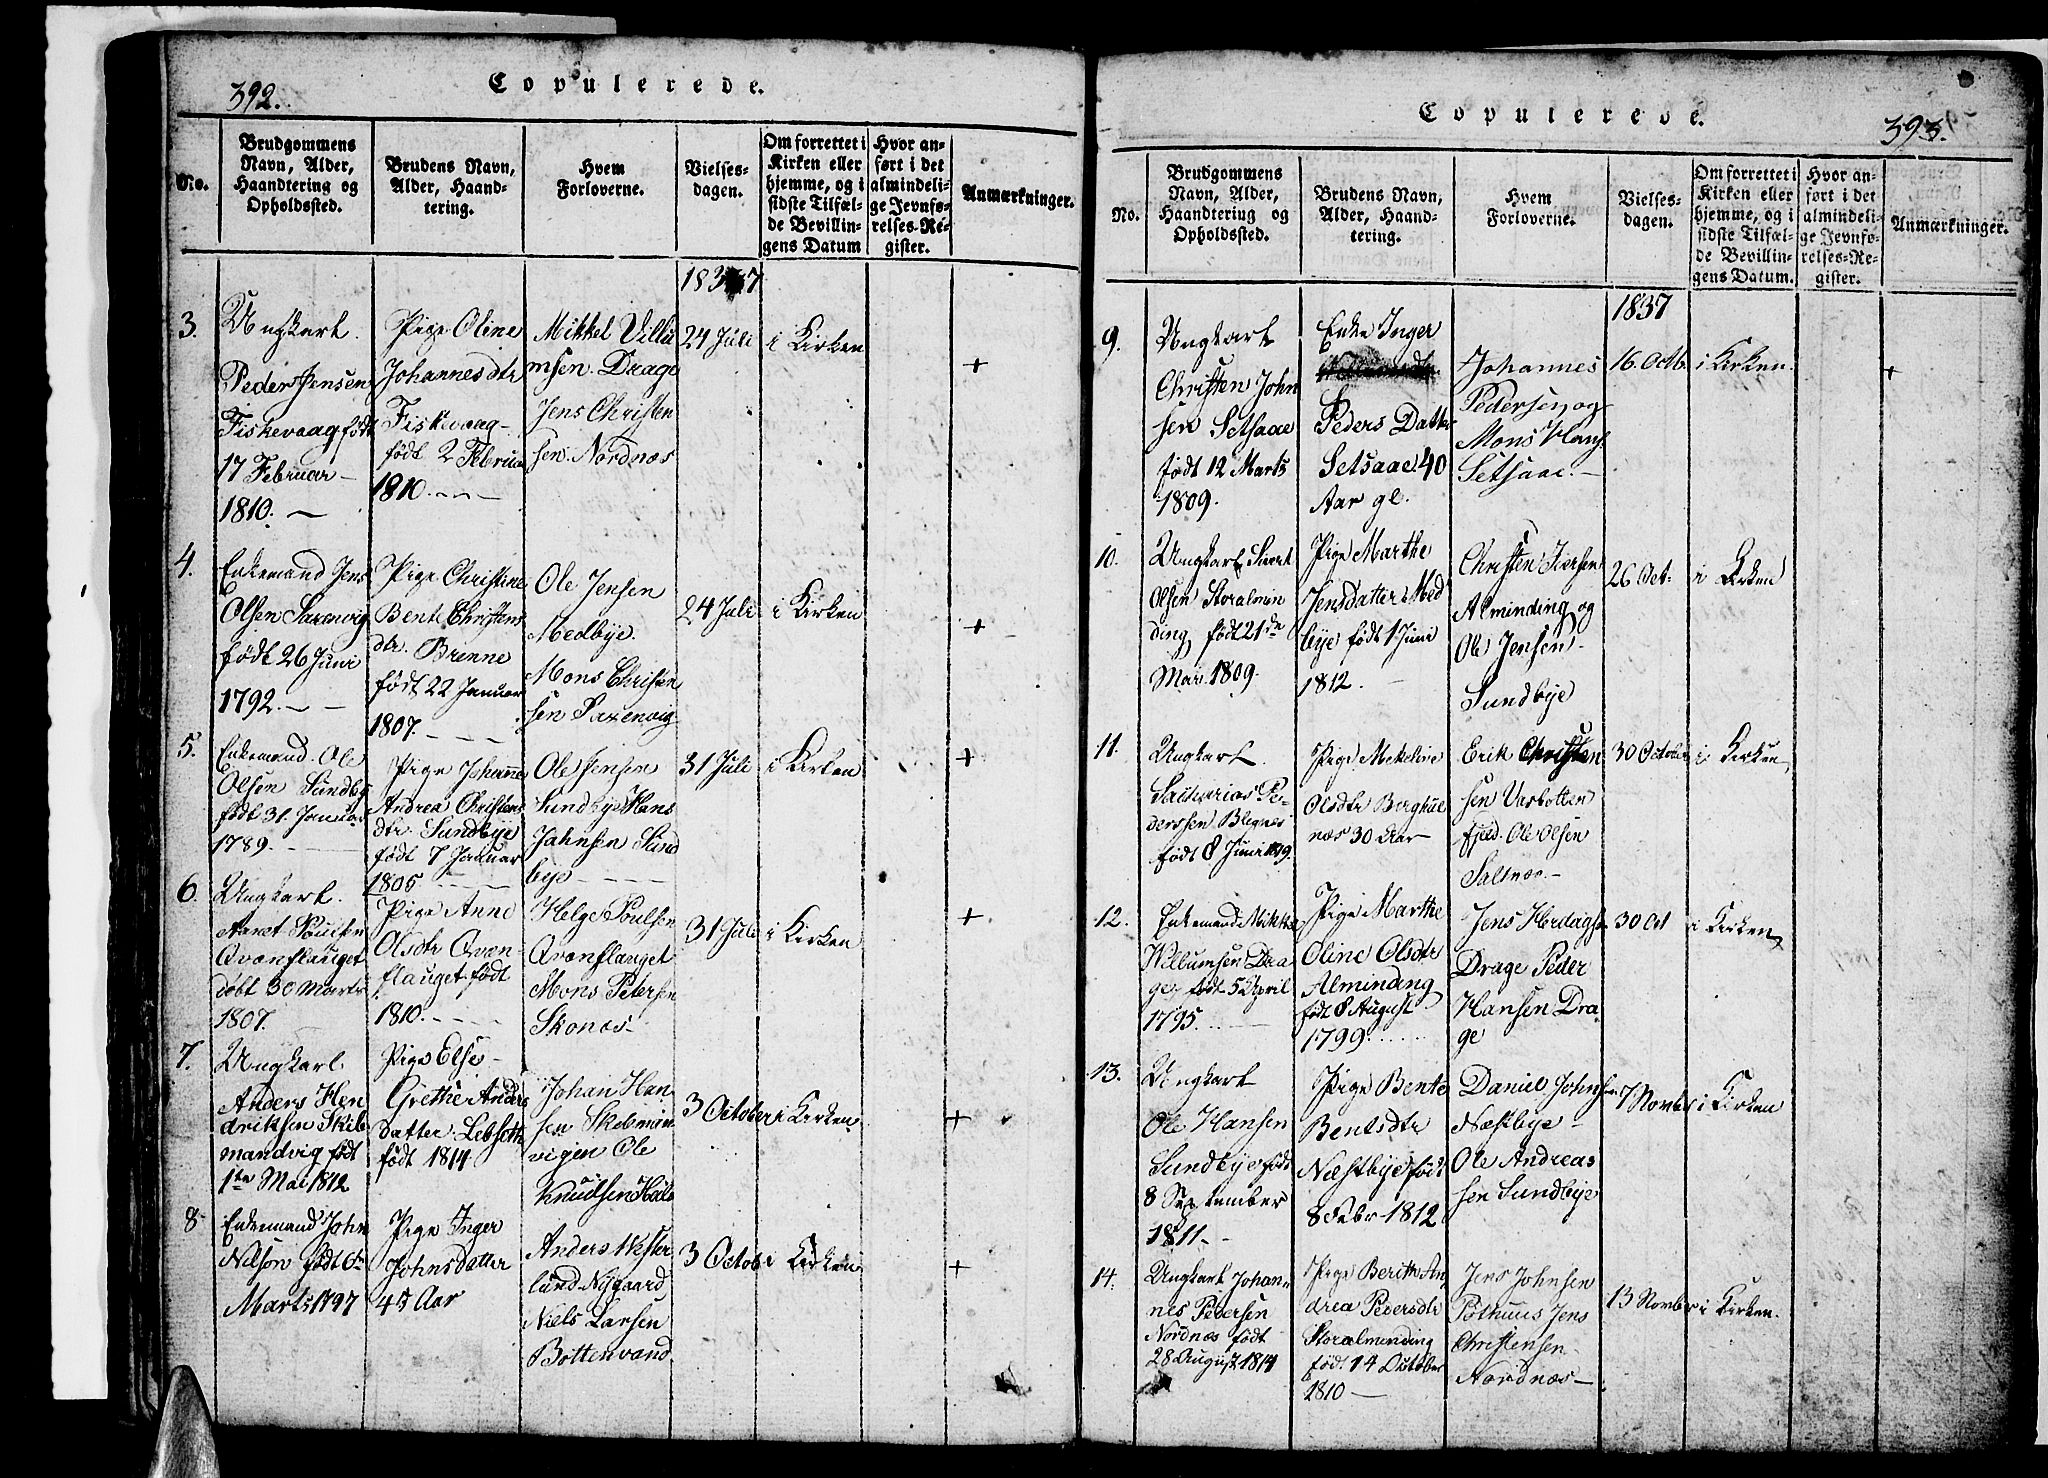 392.
Copulerede.
No.
Brudgommens
Navn, Alder,
Haandtering og
Opholdssted.
Brudens Navn,
Alder, Haand-
tering.
Hvem
Forloverne.
Vielses-
dagen.
Om forrettet i
Kirken eller
hjemme, og i
sidste Tilfæl-
de Bevillin-
gens Datum
Hvor an-
ført i det
almindeli-
ge Jevnfø-
relses-Re-
gister.
Anmærkninger.
1837
3.
Ungkarl.
Peder Jensen
Fiskevaag født
17 Februar
1810. —
Pige Oline
Johannesdtr
Fiskevaag
født 2 Februa
1810.
Mikkel Villu
msen. Drage
Jens Christen
sen. Nordnæs
24 Juli
i Kirken
+
4.
Enkemand Jens
Olsen Saxenvig
født 26 Juni
1792. —
Pige Christine
Bente Christens
dtr. Brenne
født 22 Januar
1807.
Ole Jensen
Medbye.
Mons Christen
sen Saxenvig
24 Juli
i Kirken
+
5.
Enkemand Ole
Olsen Sundby
født 31. Janua
1789.
Pige Johanne
Andrea Christens
dtr. Sundbye
født 7 Januar
1805
Ole Jensen
Sundbye Hans
Jahnsen Sund
bye
31 Juli
i Kirken
+
6.
Ungkarl.
Qvænflauget
døbt 30 Marts
1807.
Pige Anne
Olsdtr Qvæn-
flauget født
1810.
Helge Poulsen
Qvænflauget
Mons Petersen
Skonæs
31 Juli
i Kirken
+
7.
Ungkarl
Anders Hen
driksen Skib
mandvig født
1te Mai 1812
Pige Else
Grethe Anders
datter
født 1811
Johan Han
sen
vigen Ole
Knudsen
3 October
i Kirken
+
8
Enkemand John
Nilsen født 6te
Marts 1797
Pige Inger
Johnsdatter
45 Aar
Anders Vester
lund Nygaard
Niels Larsen
Bottenvand
3 Octob
i Kirken
+
Copulerede.
393.
No.
Brudgommens
Navn, Alder,
Haandtering og
Opholdssted.
Brudens Navn,
Alder, Haand-
tering.
Hvem
Forloverne.
Vielses-
dagen.
Om forrettet i
Kirken eller
hjemme, og i
sidste Tilfæl-
de Bevillin-
gens Datum.
Hvor an-
ført i det
almindeli-
ge Jevnfø-
relses-Re-
gister.
Anmærkninger.
1837
9.
Ungkarl
Christen John
sen Setsaae
født 12 Marts
1809.
Enke Inger
Peders Datter
Setsaae 40
Aar gl.
Johannes
Pedersen og
Mons Hans
Setsaae. —
16. Octb.
i Kirken.
+
10.
Ungkarl Sivert
Olsen Storalmin
ding født 21de
Mai 1809.
Pige Marthe
Jensdatter Med
bye født 1 Juni
1812.
Christen Iversen
Alminding og
Ole Jensen
Sundbye
26 Oct.
i Kirken
11.
Ungkarl.
Sacharias Pe-
derssen
født 8 Juni
Pige Mekeline
Olsdtr
næs 30 Aar
Erik Christen
sen
fjeld. Ole Olsen
Saltnæs
30 October
i Kirken
12.
Enkemand Mikkel
Willumsen Dra
ge født 5 April
1795.
Pige Marthe
Oline Olsdtr
Alminding
født 8 August
1799.
Jens
Drage Peder
Hansen Dra-
ge
30 Oct
i Kirken
13.
Ungkarl
Ole Hansen
Sundbye født
8 September
1811.
Pige Bente
Bentsdtr
Næstbye født
8 Febr 1812
Daniel Johnsen
Næstbye
Ole Andreas
sen Sundbye
7 Novmber
i Kirken
14.
Ungkarl Johan
nes Pedersen
Nordnæs født
28 August 1811
Pige Berith An
drea Pedersdtr
Storalminding
født. 14 October
1810 —
Jens Johnsen
Pothuus Jens
Christensen
Nordnæs —
13 Novmber
i Kirken.